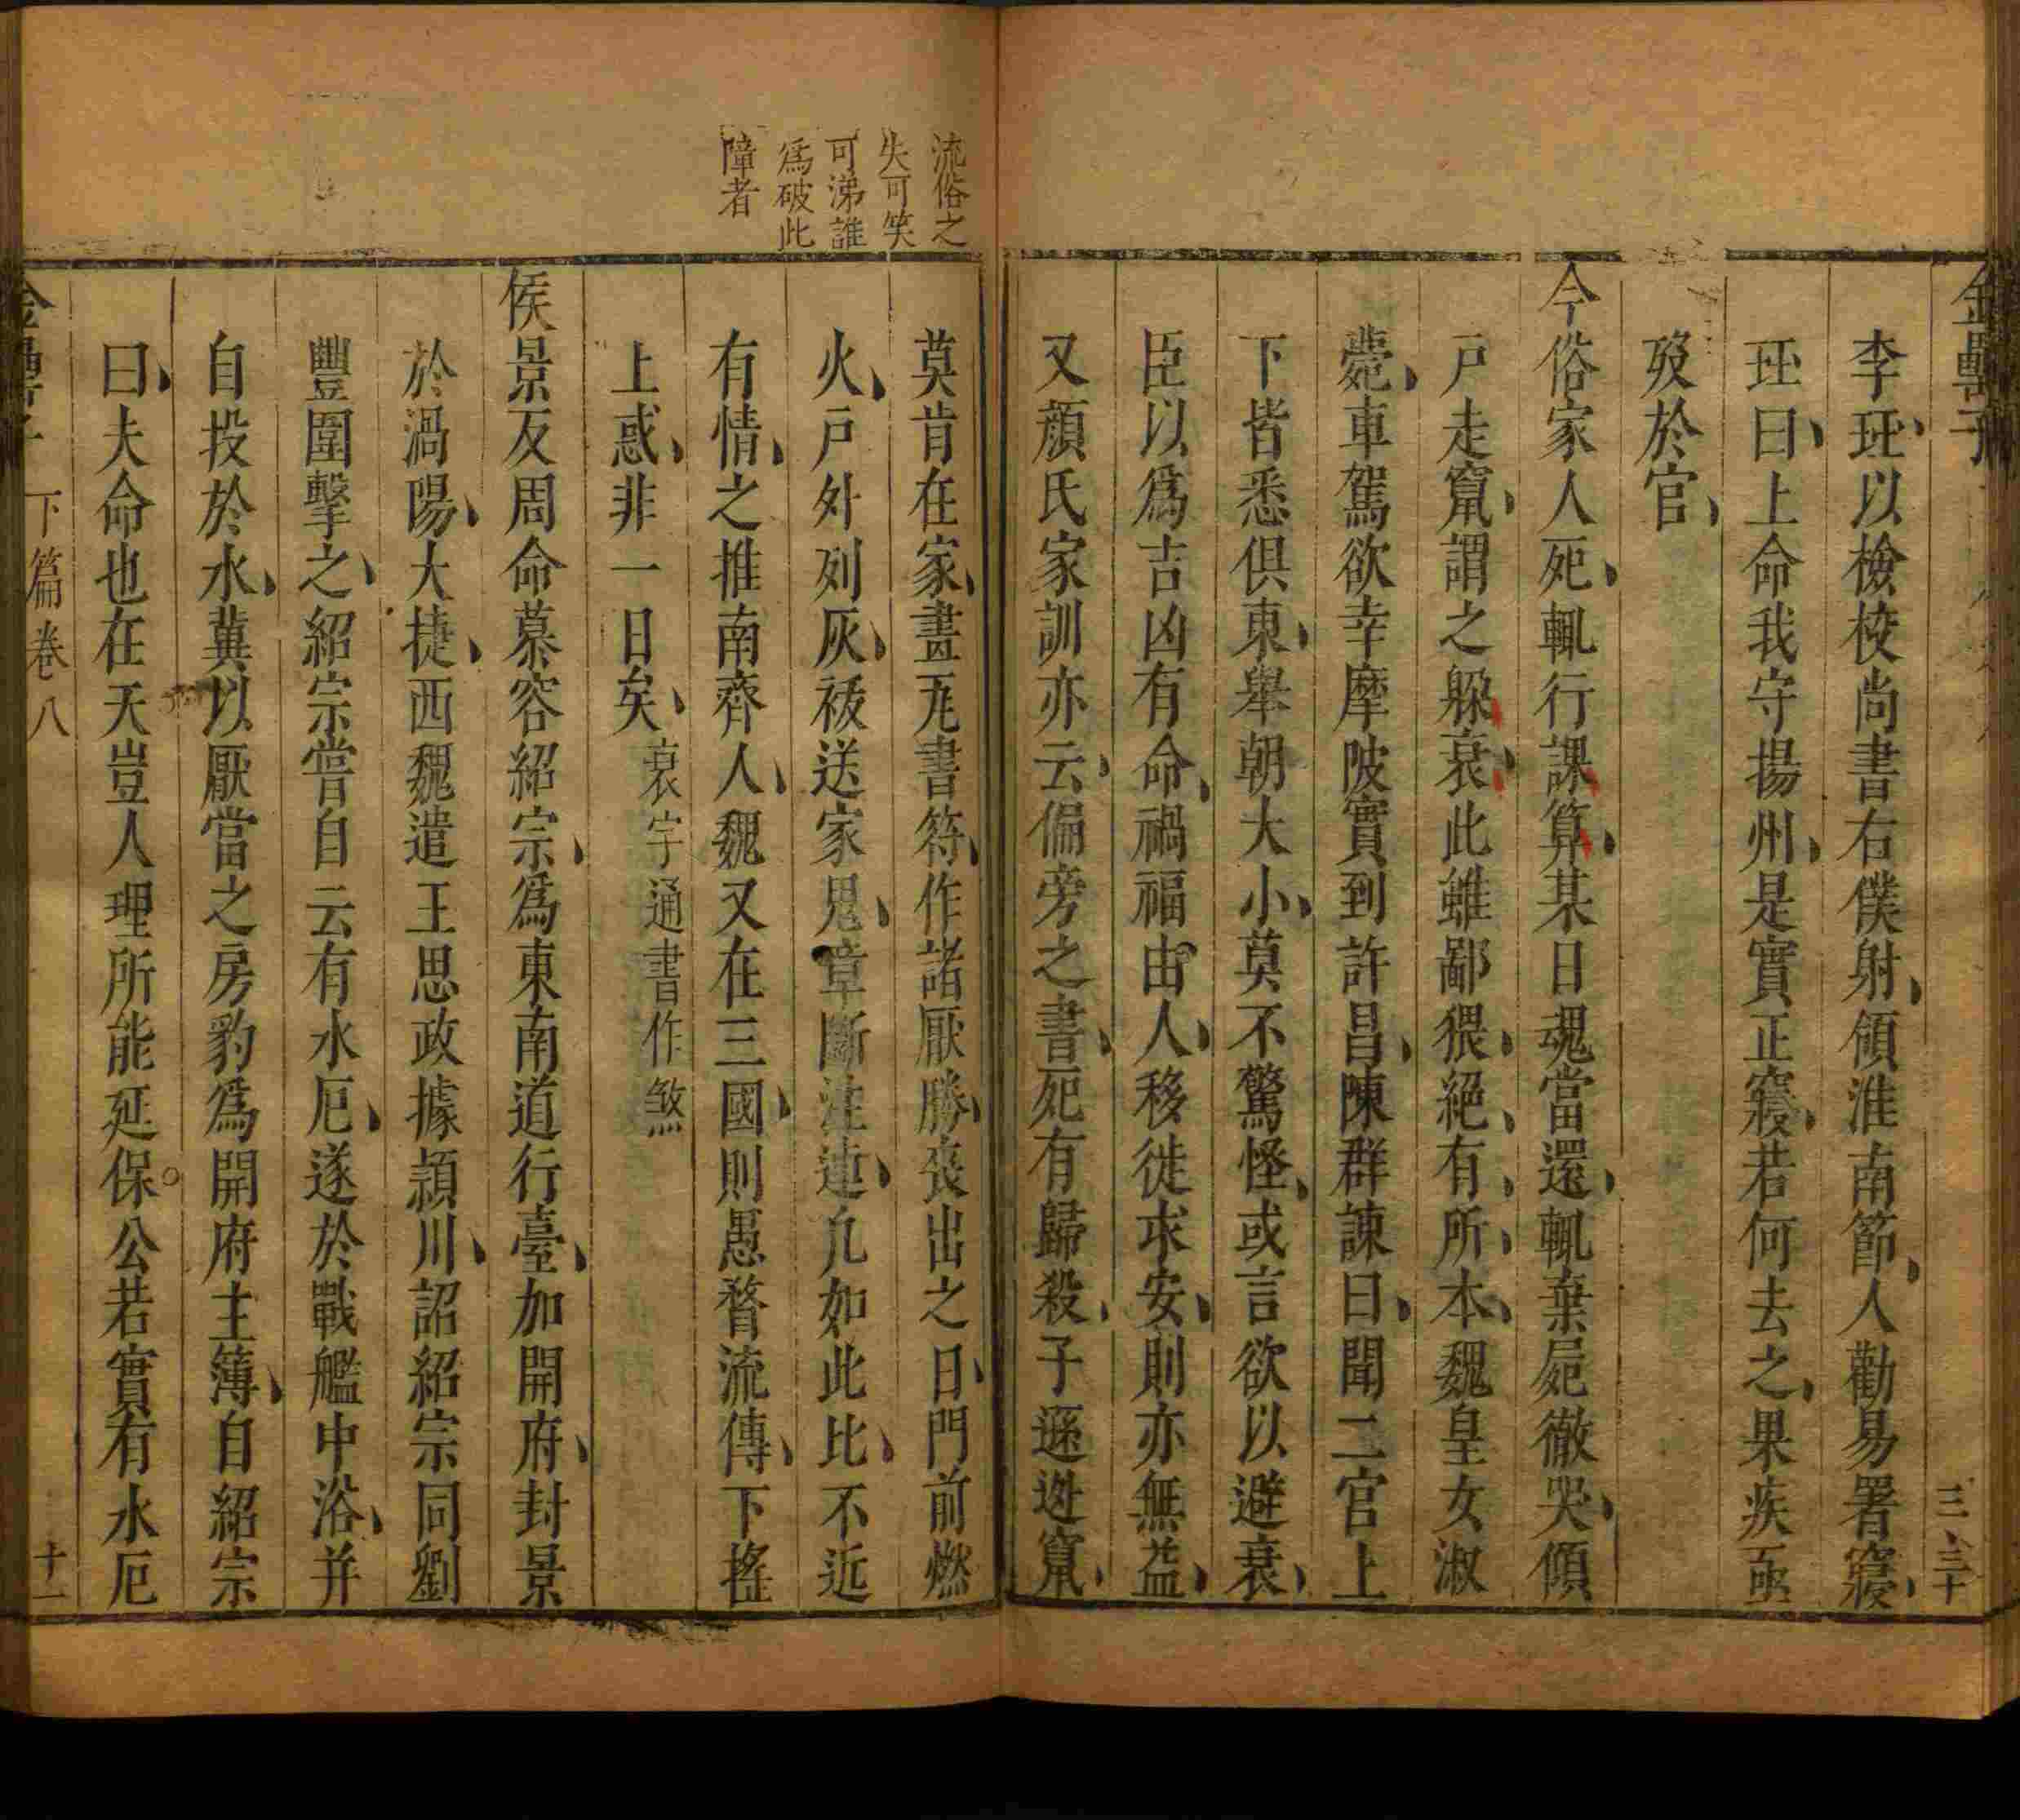 李珏以檢校尚書右僕射領淮南節人勸易署寢
珏曰上命我守揚州是實正寢若何去之果疾亟
歿於官
今俗家人死輒行課算某日魂當還輒棄屍徹哭傾
戸走竄謂之躱衰此雖鄙猥絕有所本魏皇女淑
薨車駕欲幸摩陂實到許昌陳群諫曰聞二宮上
下皆悉俱東舉朝大小莫不驚怪或言欲以避衰
臣以爲吉凶有命禍福由人移徙求安則亦無益
又顔氏家訓亦云偏旁之書死有歸殺子孫逃竄
莫肯在家畫瓦書符作諸厭勝喪出之日門前燃
火戸外列灰祓送家鬼章斷注連凡如此比不近
有情之推南齊人魏又在三國則愚瞀流傳下搖
上惑非一日矣衰字通書作煞
侯景反周命慕容紹宗爲東南道行臺加開府封景
於渦陽大捷西魏遣王思政據潁川詔紹宗同劉
豐圍擊之紹宗嘗自云有水厄遂於戰艦中浴并
自投於水冀以厭當之房豹爲開府主簿白紹宗
曰夫命也在天豈人理所能延保公若實有水厄
流俗之
失可笑
可涕誰
爲破此
障者
下篇卷八
十一